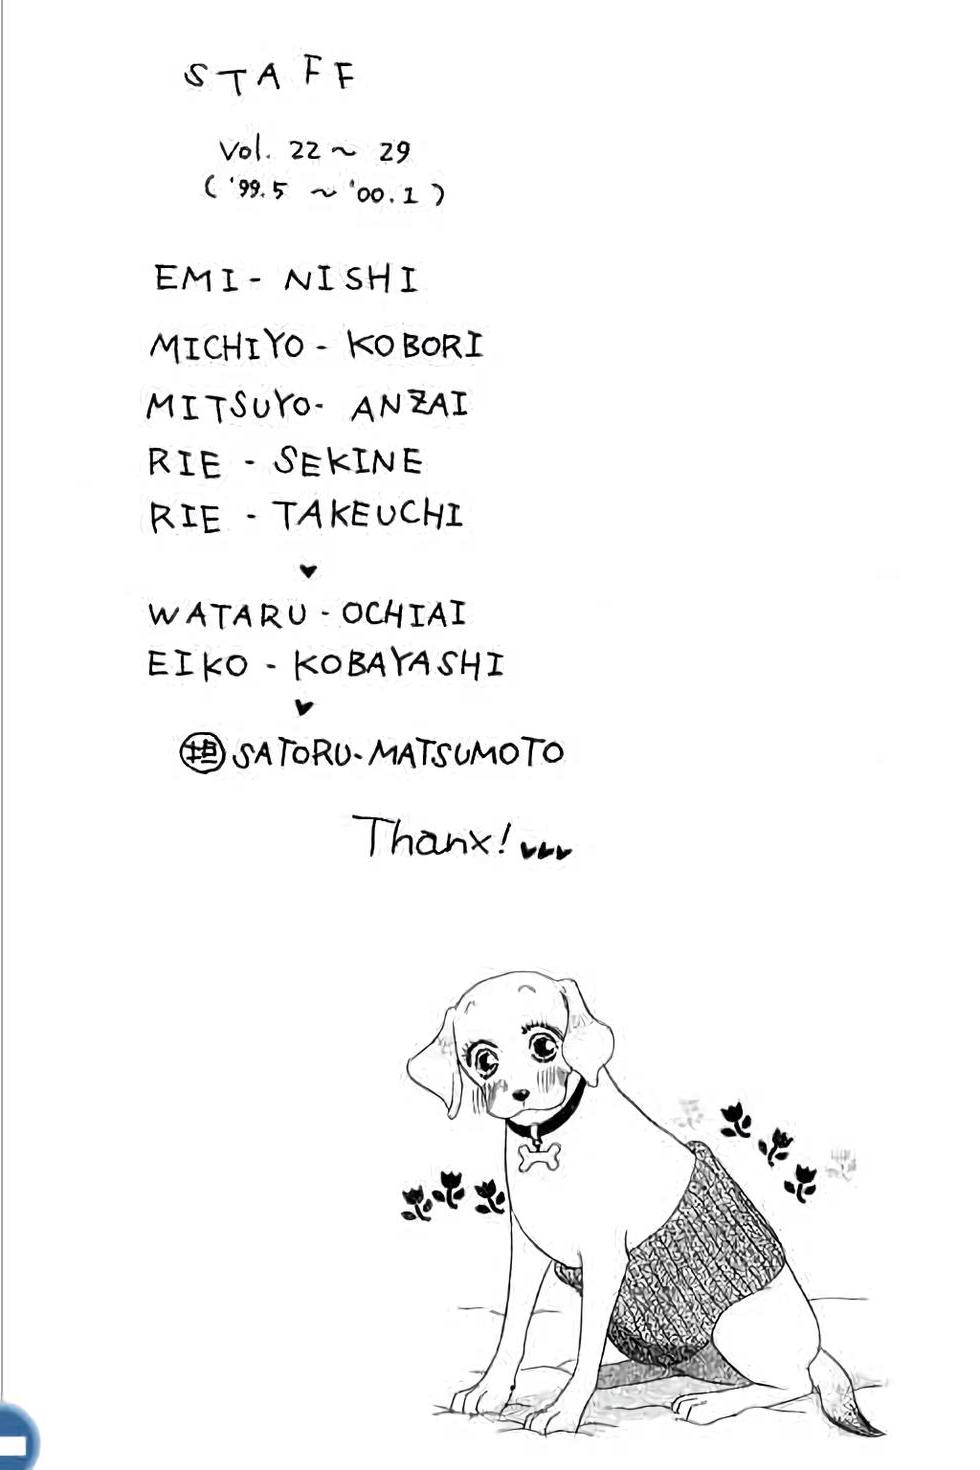 STAFF
Vol. 22~29
('99.5 ~'00.1)
EMI- NISHI
MICHIYO - KOBORI
MITSUYO- ANZAI
RIE - SEKINE
RIE - TAKEUCHI
WATARU - OCHIAI
EIKO - KOBAYASHI
担 SATORU-MATSUMOTO
Thanx!